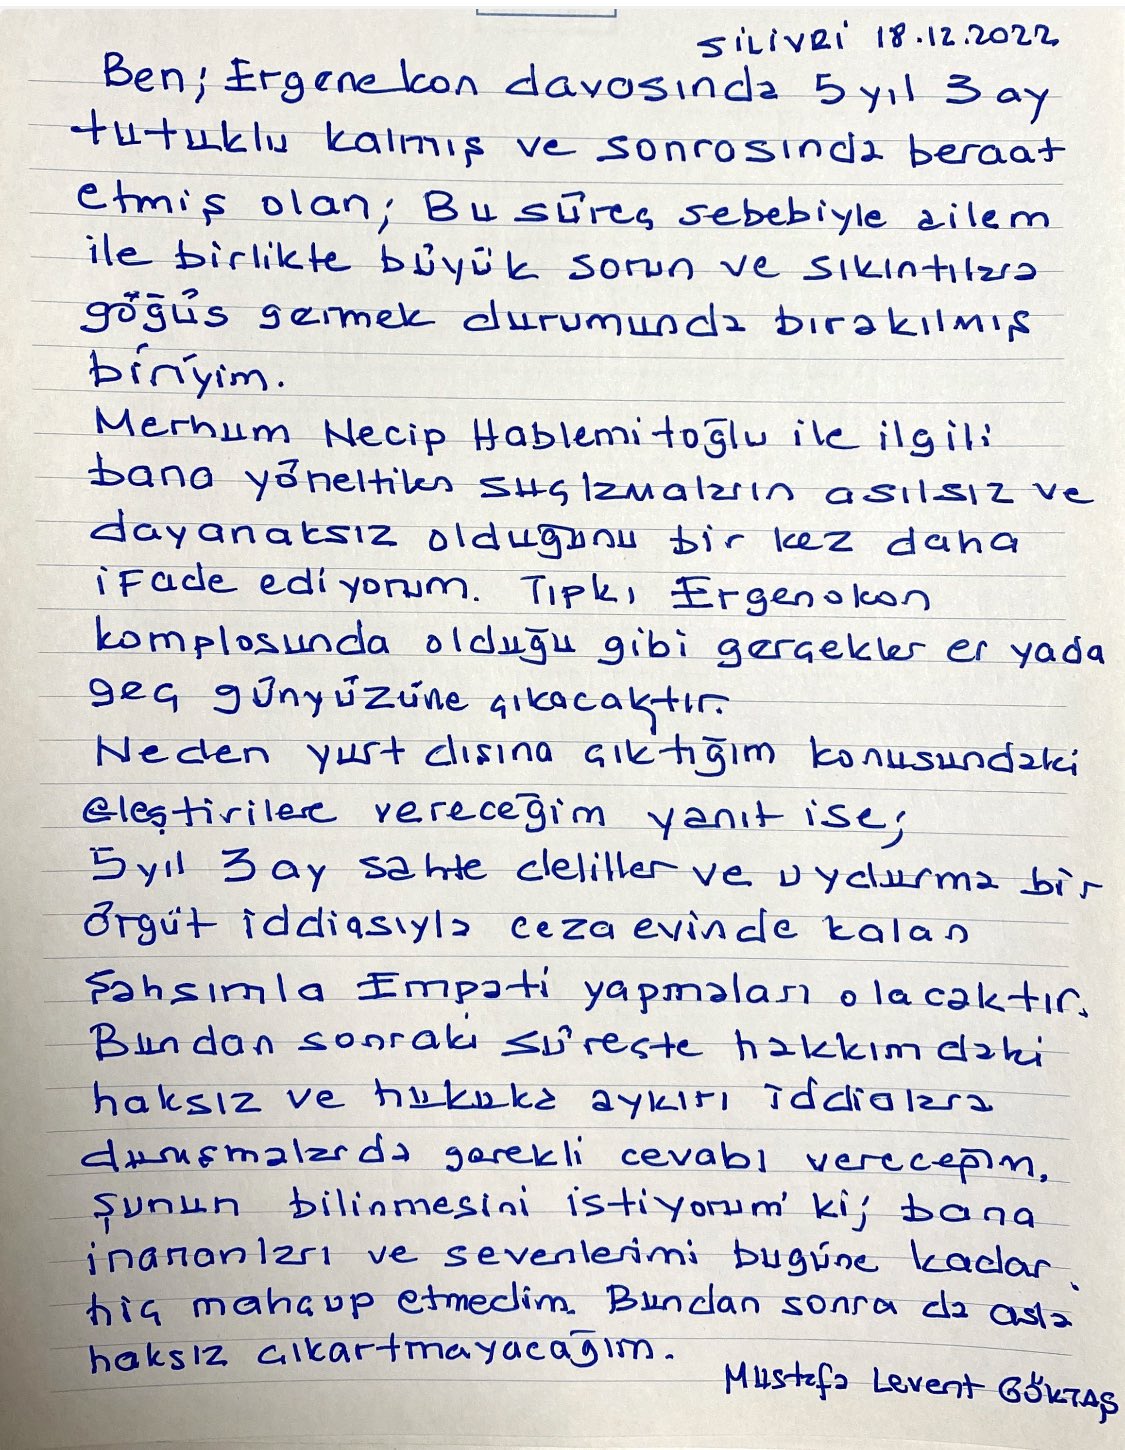 SİLİVRİ 18.12.2022
Ben; Ergenekon davasında 5 yıl 3 ay
tutuklu kalmış ve sonrasında beraat
etmiş olan; Bu süreç sebebiyle ailem
ile birlikte büyük sorun ve sıkıntılara
göğüs germek durumunda bırakılmış
biriyim.
Merhum Necip Hablemitoğlu ile ilgili
bana yöneltilen suçlamaların asılsız ve
dayanaksız olduğunu bir kez daha
ifade ediyorum. Tıpkı Ergenekon
komplosunda olduğu gibi gerçekler er yada
geç günyüzüne çıkacaktır.
Neden yurt dışına çıktığım konusundaki
eleştirilere vereceğim yanıt ise;
5 yıl 3 ay sahte deliller ve uydurma bir
örgüt iddiasıyla ceza evinde kalan
şahsımla Empati yapmaları olacaktır.
Bundan sonraki süreçte hakkımdaki
haksız ve hukuka aykırı iddialara
duruşmalarda gerekli cevabı vereceğim.
Şunun bilinmesini istiyorum ki; bana
inananları ve sevenlerimi bugüne kadar
hiç mahçup etmedim. Bundan sonra da asla
haksız çıkartmayacağım.
Mustafa Levent GÖKTAŞ